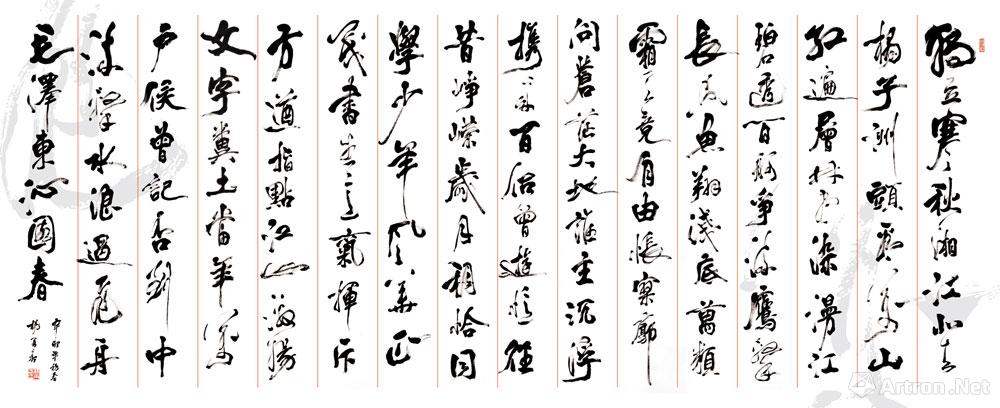 獨立寒秋湘江北去
橘子洲頭看萬山
紅遍層林盡染漫江
碧透百舸爭流鷹擊
長空魚翔淺底萬類
霜天竞自由悵寥廓
問蒼茫大地誰主沉浮
攜來百侶曾遊憶往
昔崢嶸歲月稠恰同
學少年風華正
茂書生意氣揮斥
方遒指點江山激揚
文字糞土當年萬
戶侯曾記否到中
流擊水浪遏飛舟
毛澤東沁園春
Artron.Net